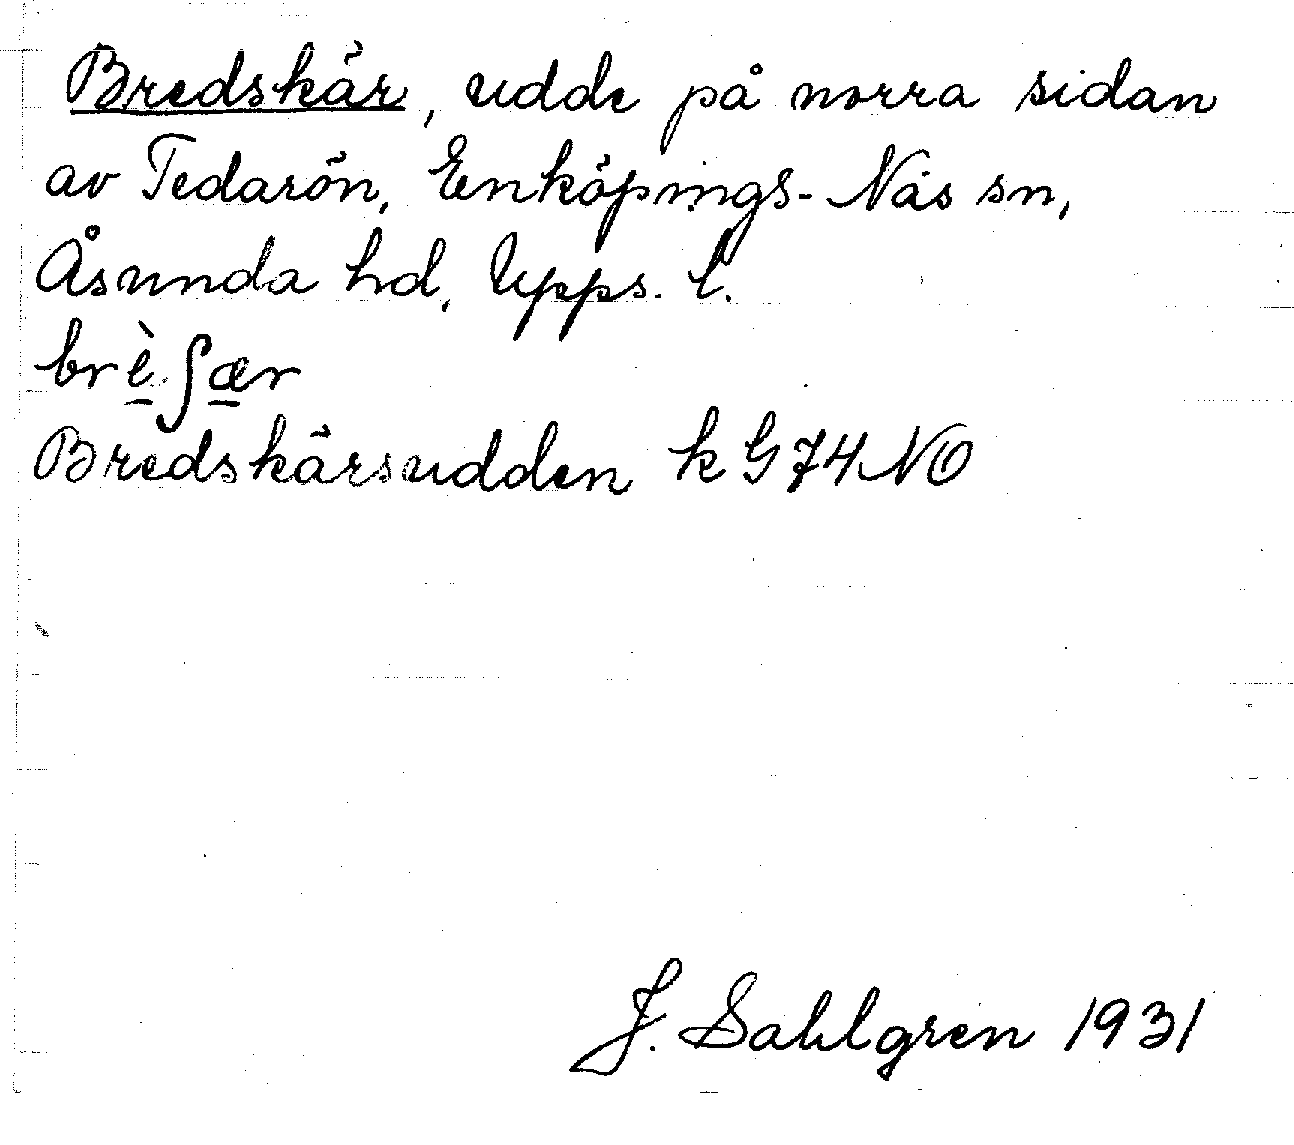 Bredskär, udde på norra sidan
av Tedarön, Enköpings-Näs sn,
Åsunda hd, Upps. l.
brè̱ʃæ̱r
Bredskärsudden k G74NO
J. Sahlgren 1931